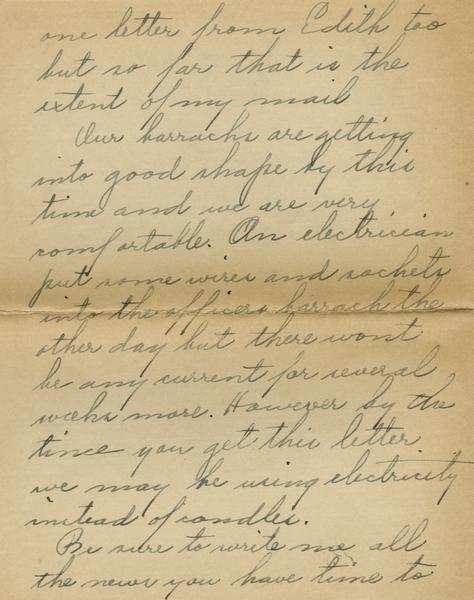 one letter from Edith too
but so far that is the
extent of my mail
Our barracks are getting
into good shape by this
time and we are very
comfortable. An electrician
put some wires and sockets
into the officers barrack the
other day but there wont
be any current for several
weeks more. However by the
time you get this letter
we may be using electricity
instead of candles.
Be sure to write me all
the news you have time to